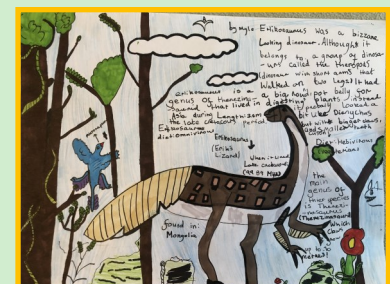 by Mylo Erlikosaurus was a bizzare
Looking dinosaur. Althought it
belongs to a group of dinosa
-urs called the theropods
(dinosaur with short arms that
Walked on two legs) it had
a big round pot belly for
digesting plants instead
It probably looked a
bit like Deinychus
but with bigger claws,
and smaller teeth
erlikosaurus is a
genus of therezino-
saurus that lived in
Asia during
the late cretaceous period
diet: omnivorous
Length: 4.5m
Erlikosaurus
(Erlik's
Lizard)
When it lived:
Late Cretaceous
Diet: Herbivorous
the
main
genus of
this species
is Therezi-
nosaurus
Which
up to 10
metres!
found in:
Mongolia